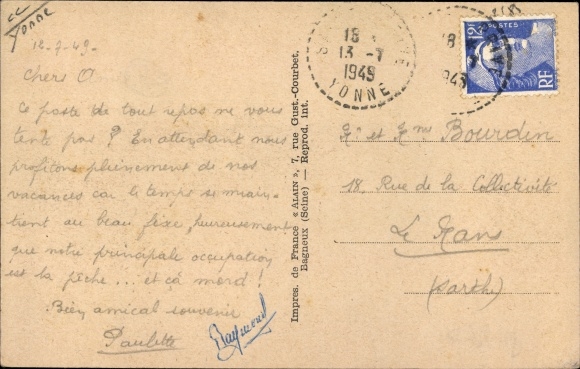 Yonne
12-7-49.
Chers
Ce poste de tout repos ne vous
tente pas ? En attendant nous
profitons pleinement de nos
vacances car le temps se main-
tient au beau fixe, heureusement
que notre principale occupation
est la pêche ... et ça mord !
Bien amical souvenir
Paulette
Raymond
Impres. de France « ALAIN », 7, rue Gust.-Courbet.
Bagneux (Seine) — Reprod. int.
18
13-7
1949
YONNE
18
1949
12F
POSTES
RF
Mr et Mme Bourdin
18, Rue de la Collectivité
Le Mans
(Sarthe)